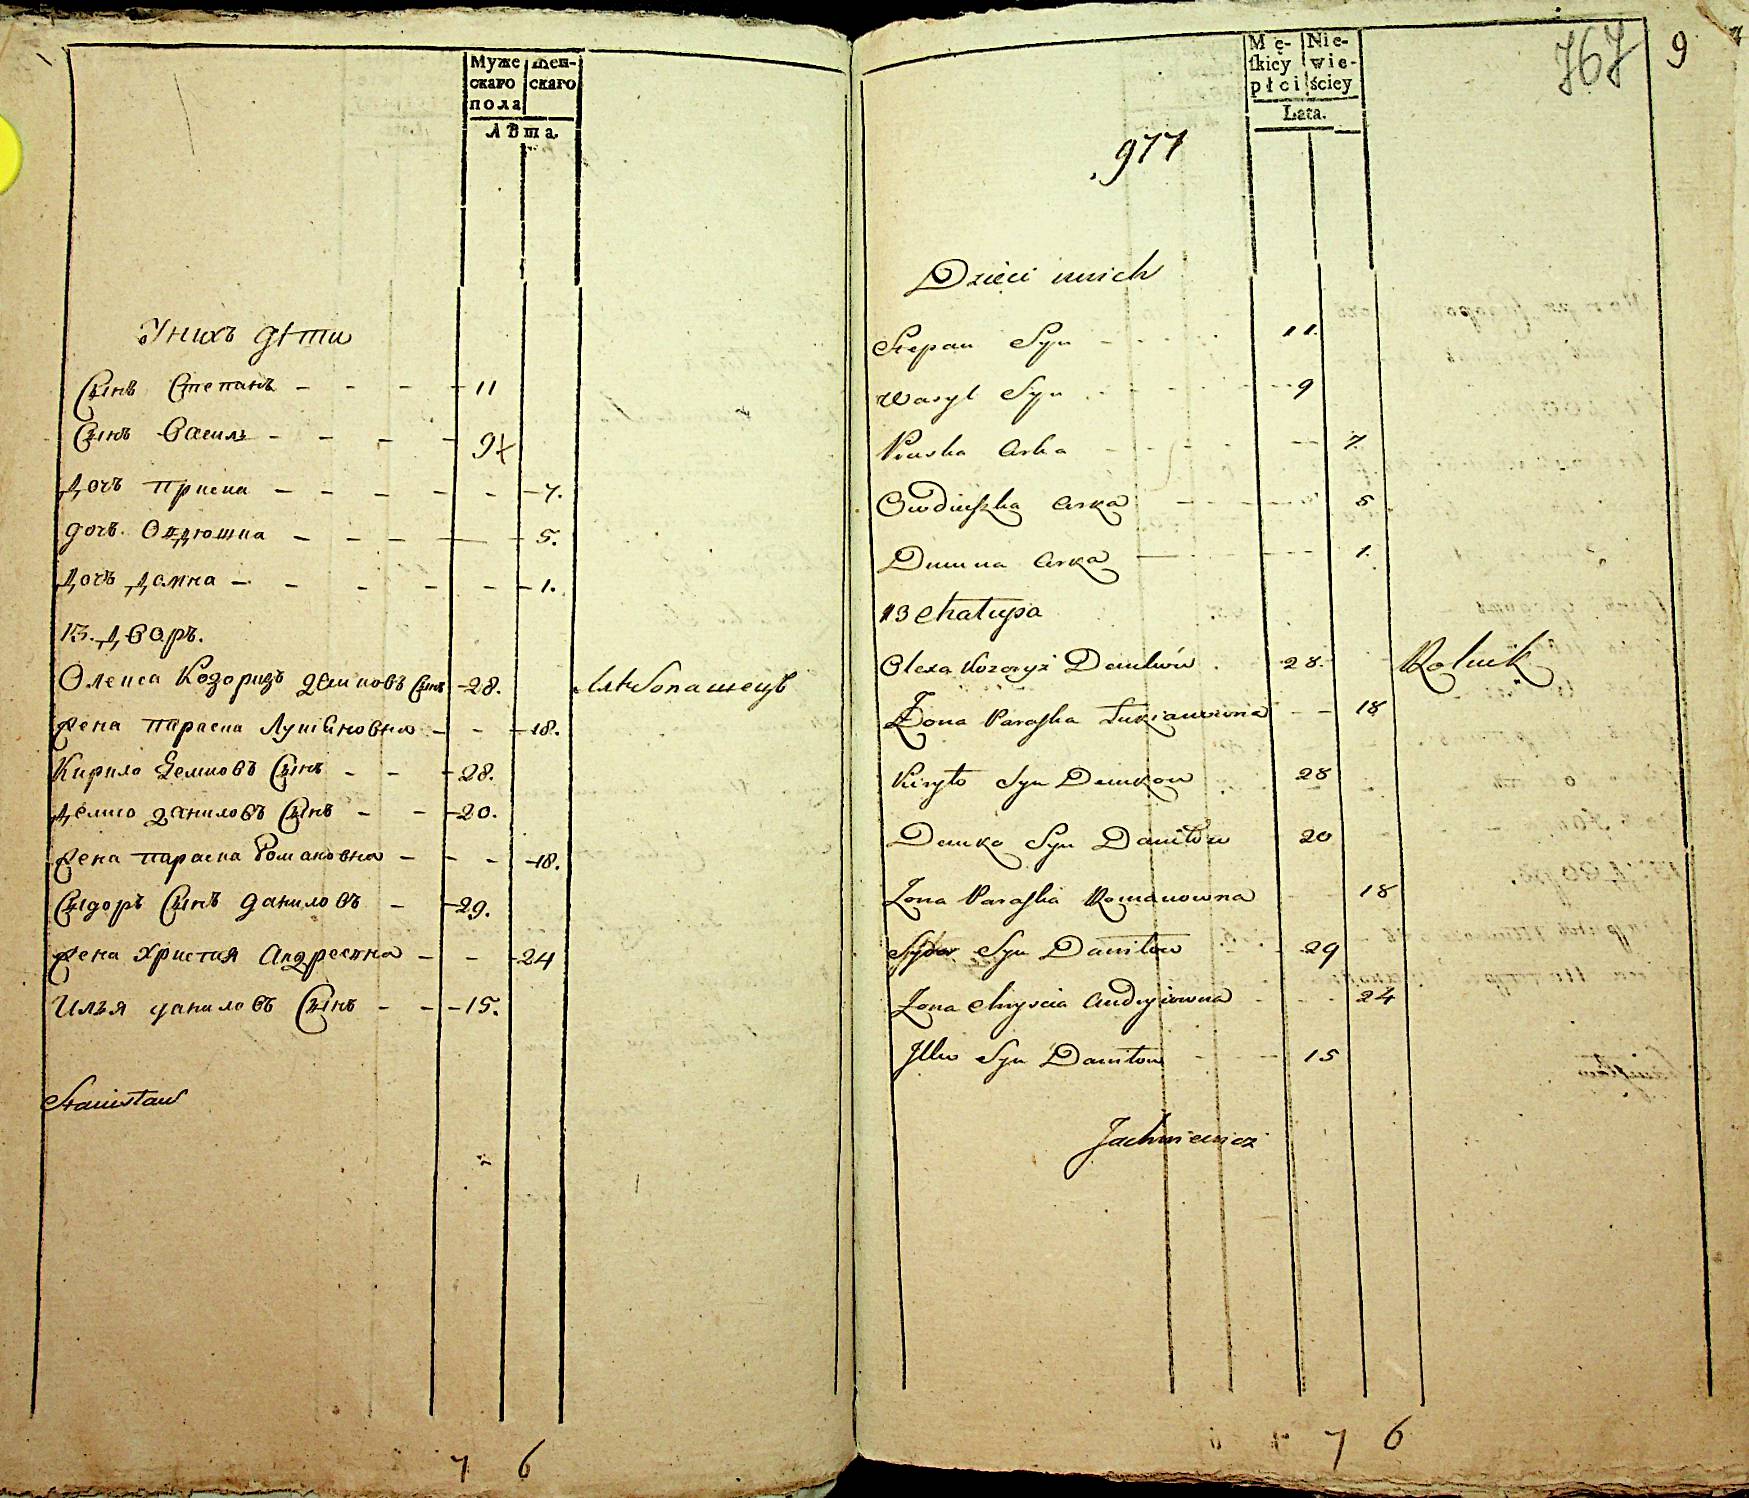 Муже Жен-
скаго скаго
пола
Лѣта.
У нихъ дѣти
Сынъ Степанъ - - - - 11
Сынъ Василь - - - - 9
Дочъ Приска - - - - - - 7.
дочъ Овдюшка - - - - - 5.
Дочъ Домна - - - - - - 1.
13. Дворъ.
Олекса Козоризъ Демковъ Сынъ - 28. Хлѣбопашецъ
Жена Параска Лукіяновна - - - 18.
Кирило Демковъ Сынъ - - - 28.
Демко Даниловъ Сынъ - - - 20.
Жена Параска Романовна - - - 18.
Сыдоръ Сынъ Даниловъ - - 29.
Жена Христия Андреевна - - - 24
Илья Даниловъ Сынъ - - - 15.
Stanisław
7 6
Mę- Nie-
skiey wie-
płci ściey
Lata.
767 9
977
Dzieci u nich
Stepan Syn - - - - 11.
Wasyl Syn - - - - 9
Priska Crka - - - - 7.
Owdiuszka Crka - - - - 5
Dumna Crka - - - - 1.
13 Chałupa
Olexa Kozoryz Demków . 28. Rolnik
Żona Paraska Łukianowna - - 18
Kiryło Syn Demkow 28
Demko Syn Daniłow 20
Żona Paraska Romanowna 18
Sydor Syn Daniłow - 29
Żona Chryscia Andryiowna - - - 24
Illia Syn Daniłow - - 15
Jachniewicz
7 6